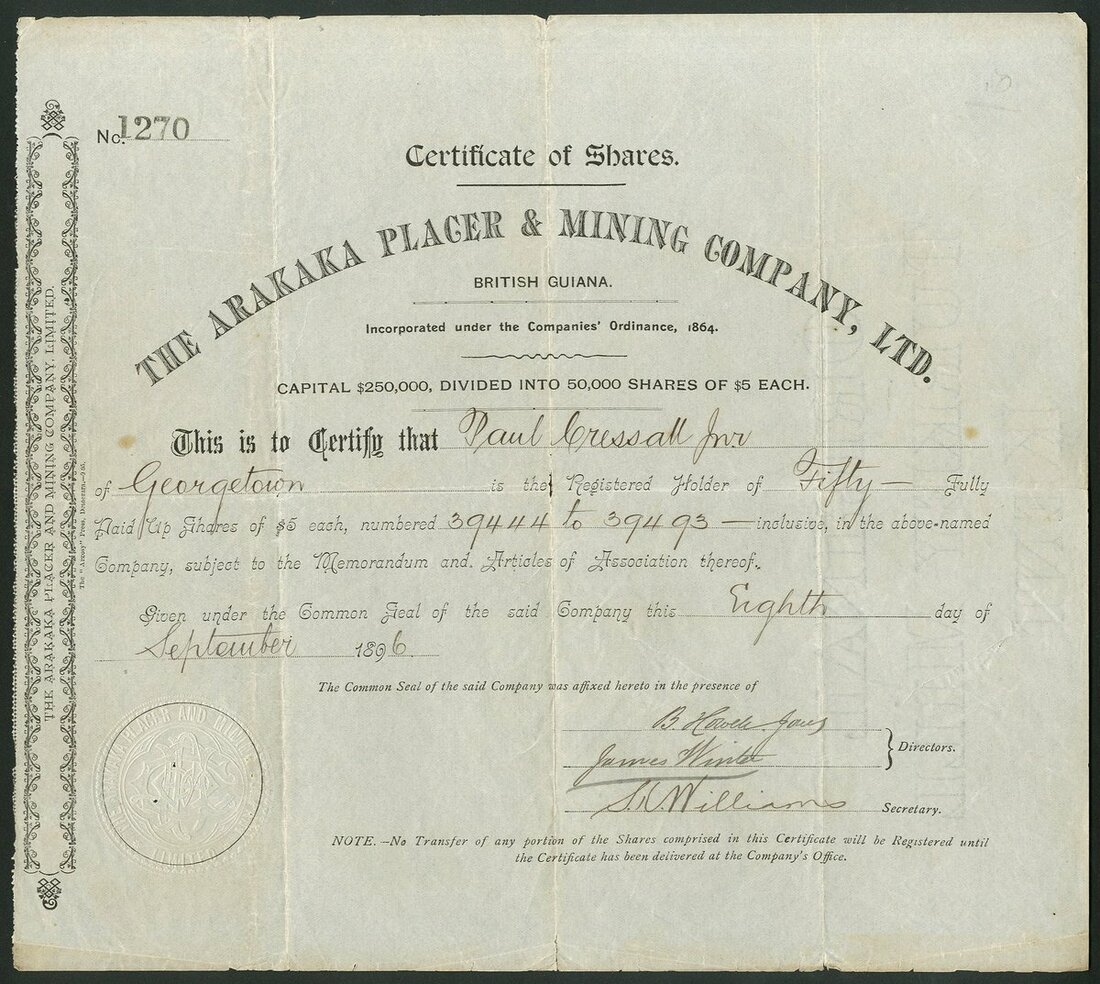 No. 1270
Certificate of Shares.
THE ARAKAKA PLACER & MINING COMPANY, LTD.
BRITISH GUIANA.
Incorporated under the Companies' Ordinance, 1864.
CAPITAL $250,000, DIVIDED INTO 50,000 SHARES OF $5 EACH.
This is to Certify that Paul Cressall Jnr
of Georgetown is the Registered Holder of Fifty — Fully
Paid Up Shares of $5 each, numbered 39444 to 39493 — inclusive, in the above-named
Company, subject to the Memorandum and. Articles of Association thereof.
Given under the Common Seal of the said Company this Eighth day of
September 1896
The Common Seal of the said Company was affixed hereto in the presence of
B. Howell Jones
James Winter
Directors.
Williams
Secretary.
NOTE. —No Transfer of any portion of the Shares comprised in this Certificate will be Registered until
the Certificate has been delivered at the Company's Office.
THE ARAKAKA PLACER AND MINING COMPANY, LIMITED.
The "Argosy" Press, Demerara
ARAKAKA PLACER AND MINING